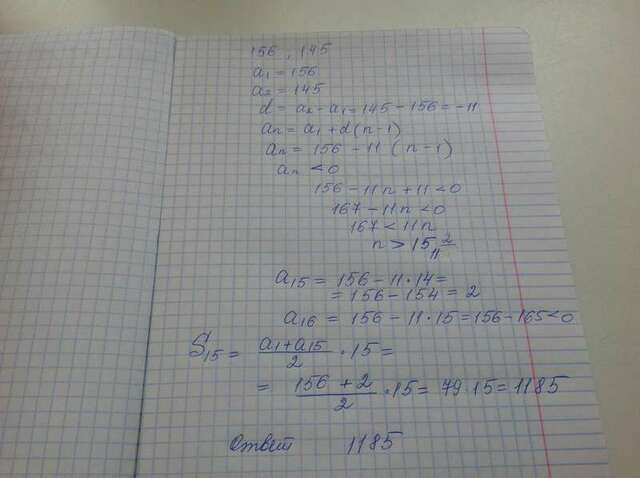 156, 145
a₁ = 156
a₂ = 145
d = a₂ - a₁ = 145 - 156 = -11
aₙ = a₁ + d(n-1)
aₙ = 156 - 11 (n-1)
aₙ < 0
156 - 11n + 11 < 0
167 - 11n < 0
167 < 11n
n > 15 2/11
a₁₅ = 156 - 11·14 =
= 156 - 154 = 2
a₁₆ = 156 - 11·15 = 156 - 165 < 0
S₁₅ = (a₁ + a₁₅)/2 · 15 =
= (156 + 2)/2 · 15 = 79·15 = 1185
Ответ 1185